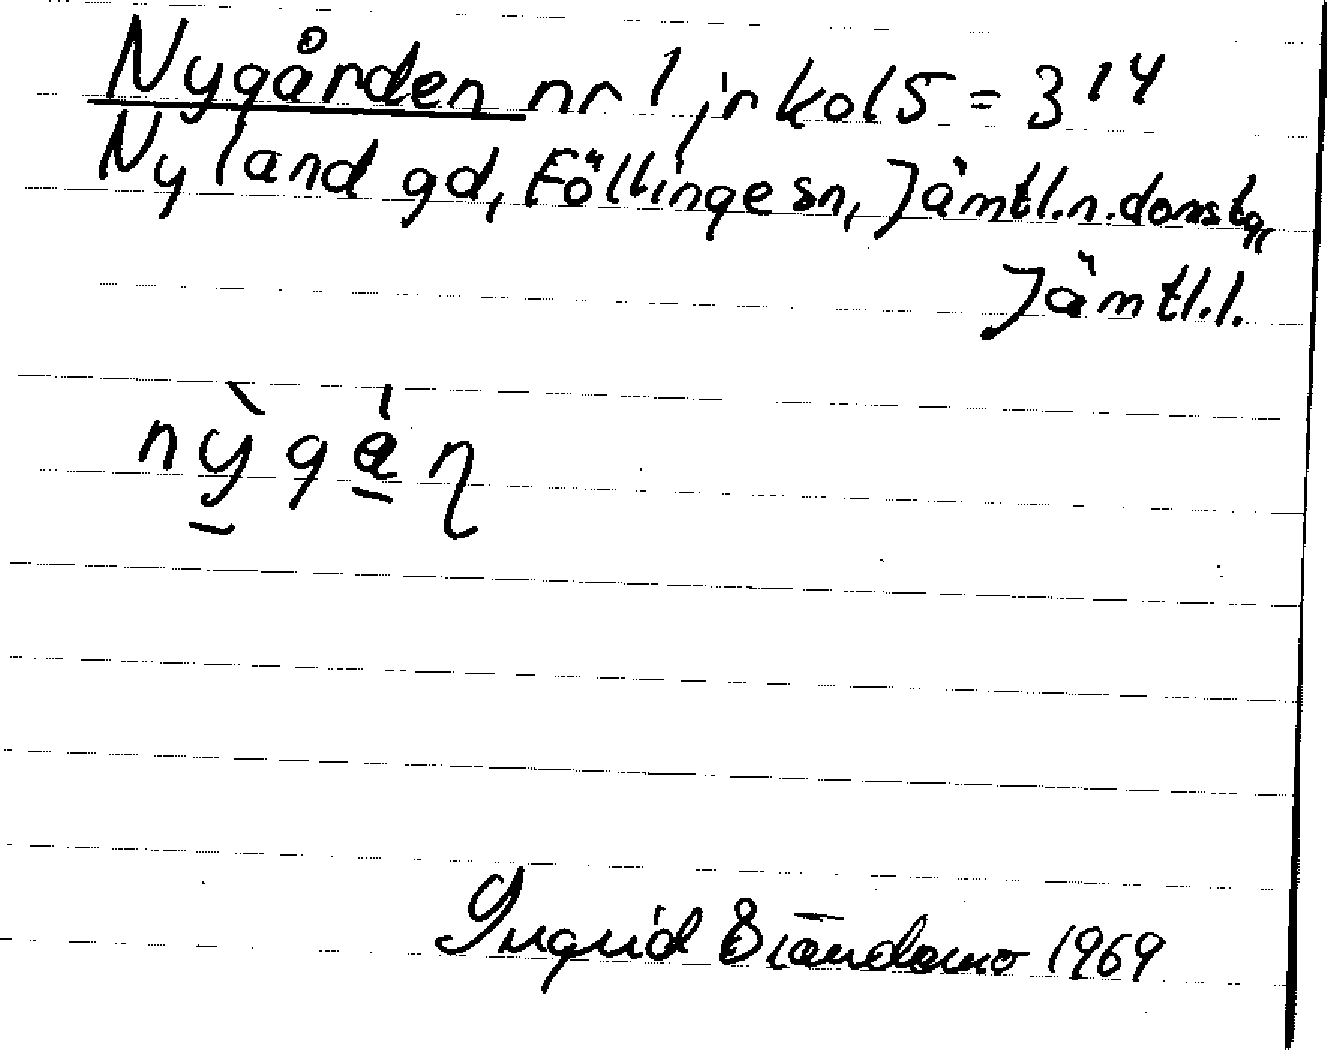 Nygården nr 1, jr kol 5 = 3¹⁴
Nyland gd, Föllinge sn, Jämtl. n. domsg,
Jämtl.l.
nỳgán
Ingrid 1969